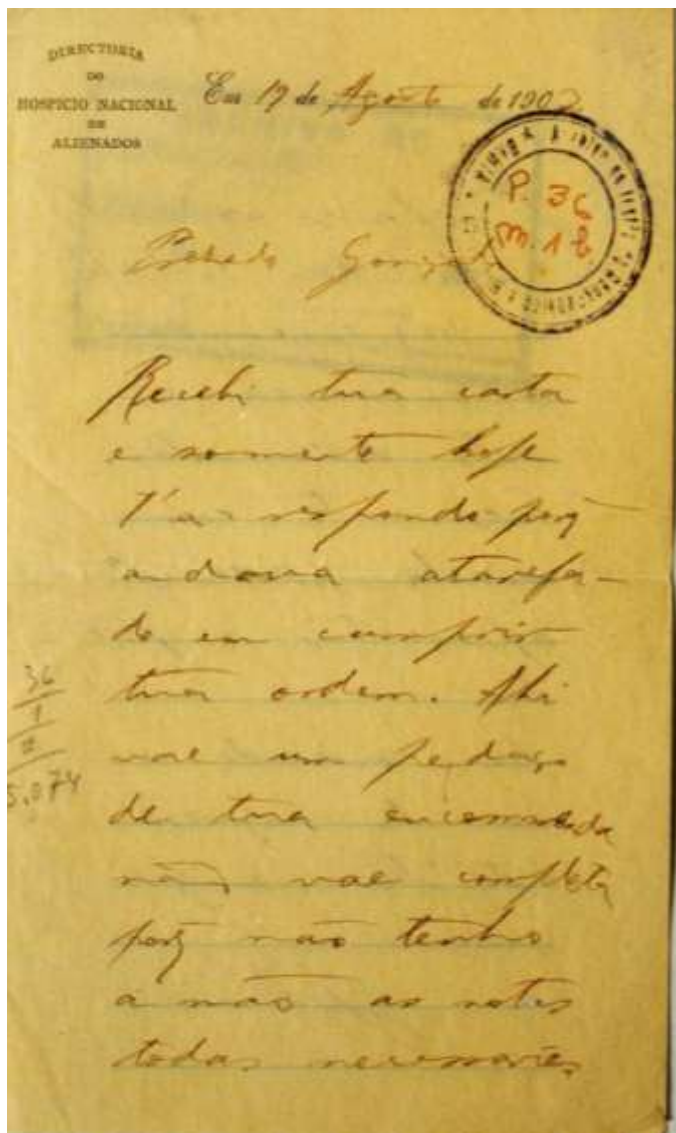 DIRECTORIA
DO
HOSPICIO NACIONAL
DE
ALIENADOS
Em 19 de Agosto de 1902
P. 36
M. 1 b.
Recebi tua carta
e somente hoje
respondo porq
andava atarefa-
do em cumprir
tua ordem. Ahi
vae um pedaço
de tua encommenda
não vae completa
porq não tenho
a mão as notas
todas necessarias
36
1
5.074